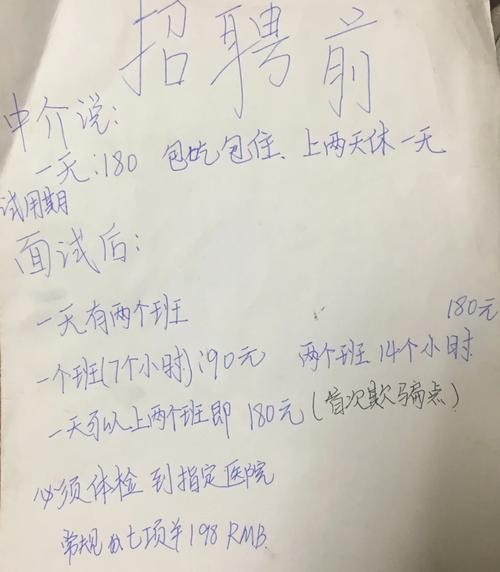 招聘前
中介说:
一天:180 包吃包住、上两天休一天
试用期
面试后:
一天有两个班
180元
一个班(7个小时):90元 两个班 14个小时
一天可以上两个班即 180元(首次欺骗点)
必须体检 到指定医院
常规 七项 198 RMB.